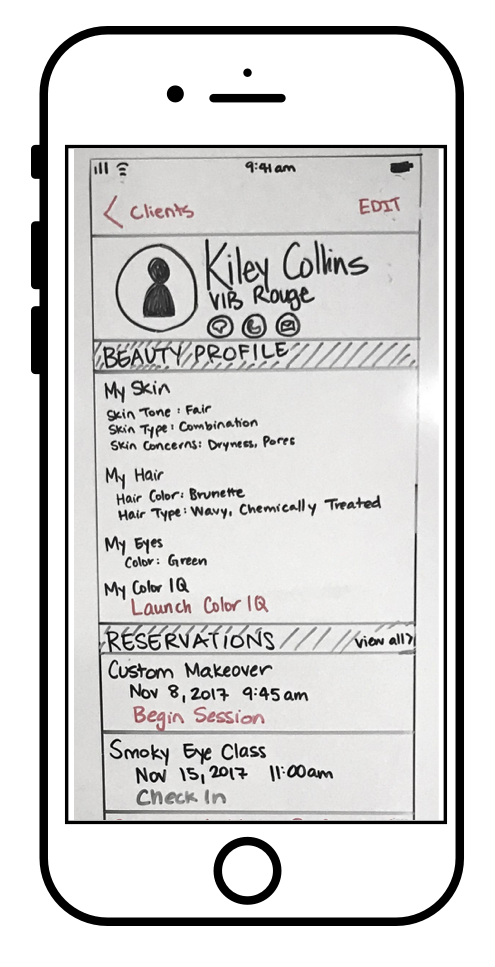 9:41 am
Clients EDIT
Kiley Collins
VIB Rouge
BEAUTY PROFILE
My Skin
Skin Tone: Fair
Skin Type: Combination
Skin Concerns: Dryness, Pores
My Hair
Hair Color: Brunette
Hair Type: Wavy, Chemically Treated
My Eyes
Color: Green
My Color IQ
Launch Color IQ
RESERVATIONS view all>
Custom Makeover
Nov 8, 2017 9:45 am
Begin Session
Smoky Eye Class
Nov 15, 2017 11:00am
Check In